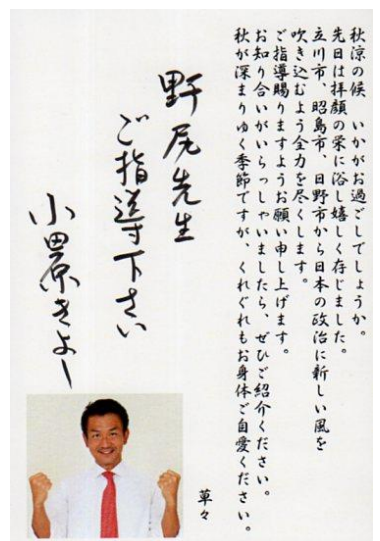 秋涼の候　いかがお過ごしでしょうか。
先日は拝顔の栄に浴し嬉しく存じました。
立川市、昭島市、日野市から日本の政治に新しい風を
吹き込むよう全力を尽くします。
ご指導賜りますようお願い申し上げます。
お知り合いがいらっしゃいましたら、ぜひご紹介ください。
秋が深まりゆく季節ですが、くれぐれもお身体ご自愛ください。
草々
野尻先生
ご指導下さい
小田原きよし